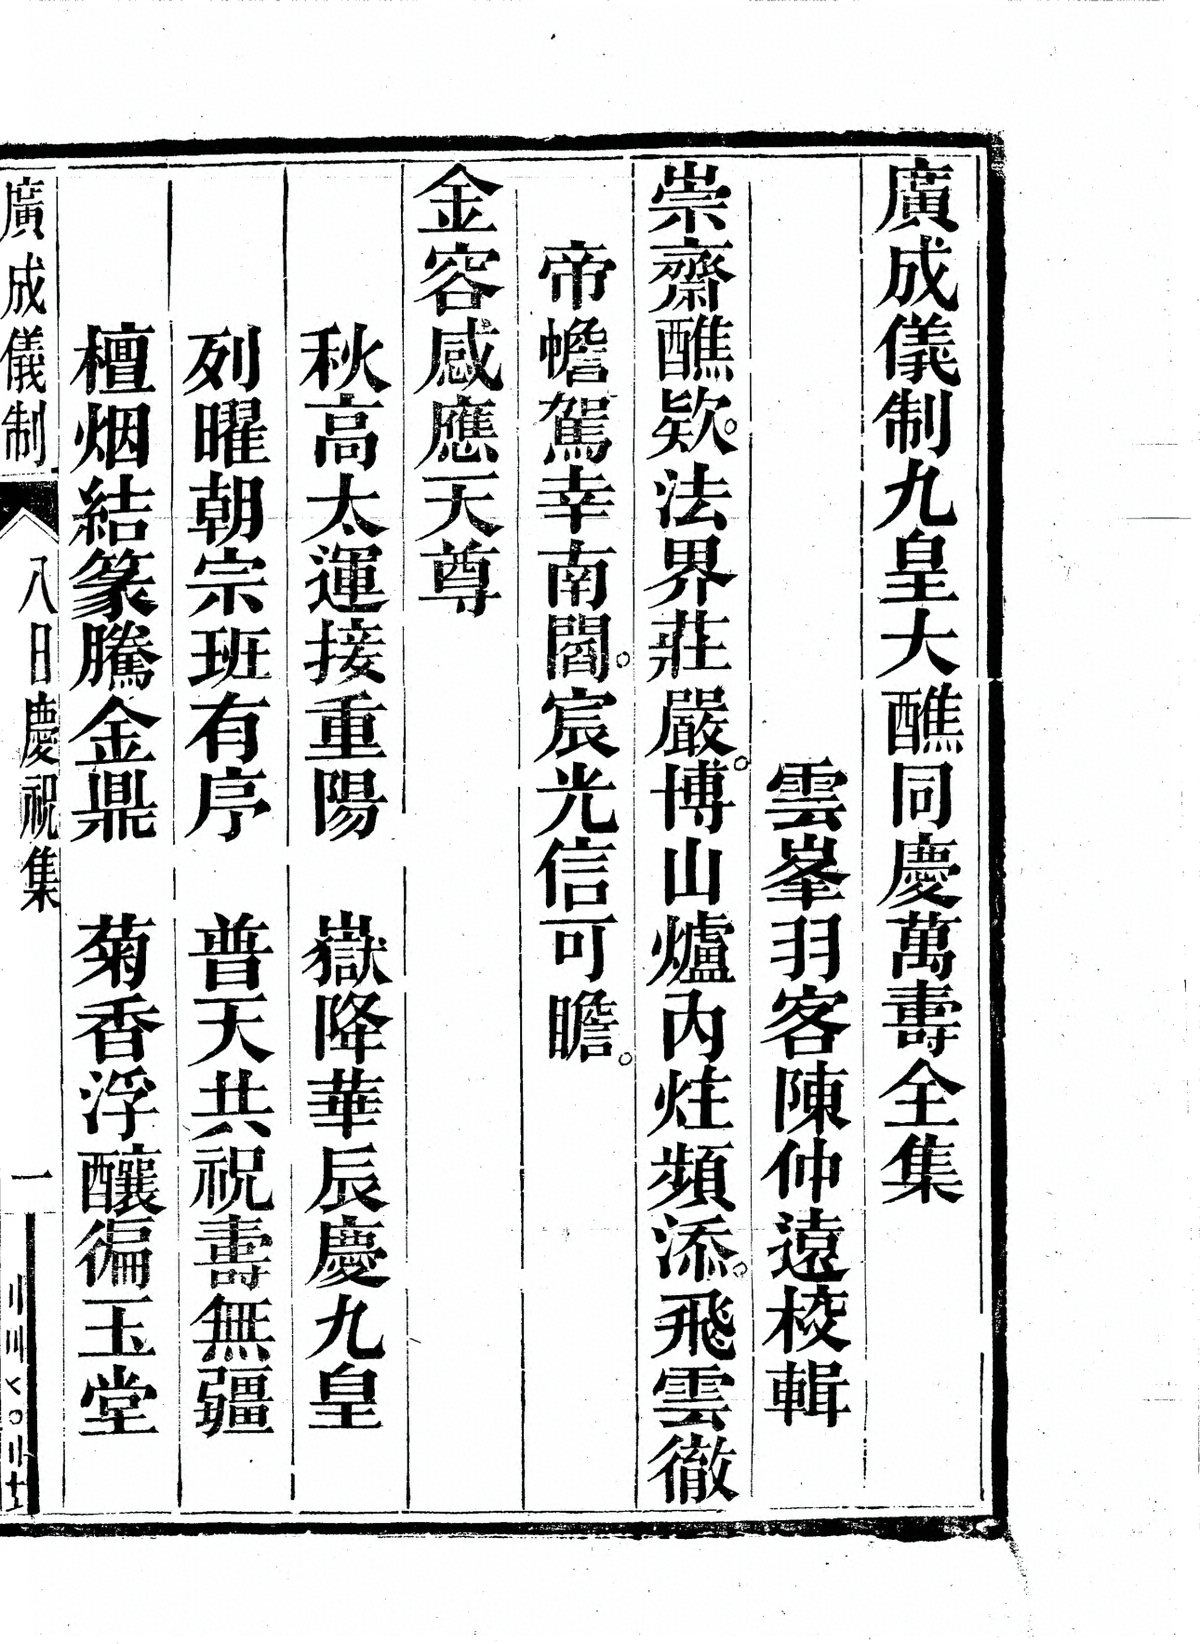 廣成儀制九皇大醮同慶萬壽全集
雲峯羽客陳仲遠校輯
崇齋醮欵。法界莊嚴。博山爐內炷頻添。飛雲徹
帝幨駕幸南閻。宸光信可瞻。
金容感應天尊
秋高太運接重陽　嶽降華辰慶九皇
列曜朝宗班有序　普天共祝壽無疆
檀烟結篆騰金鼎　菊香浮釀徧玉堂
廣成儀制　八日慶祝集　一